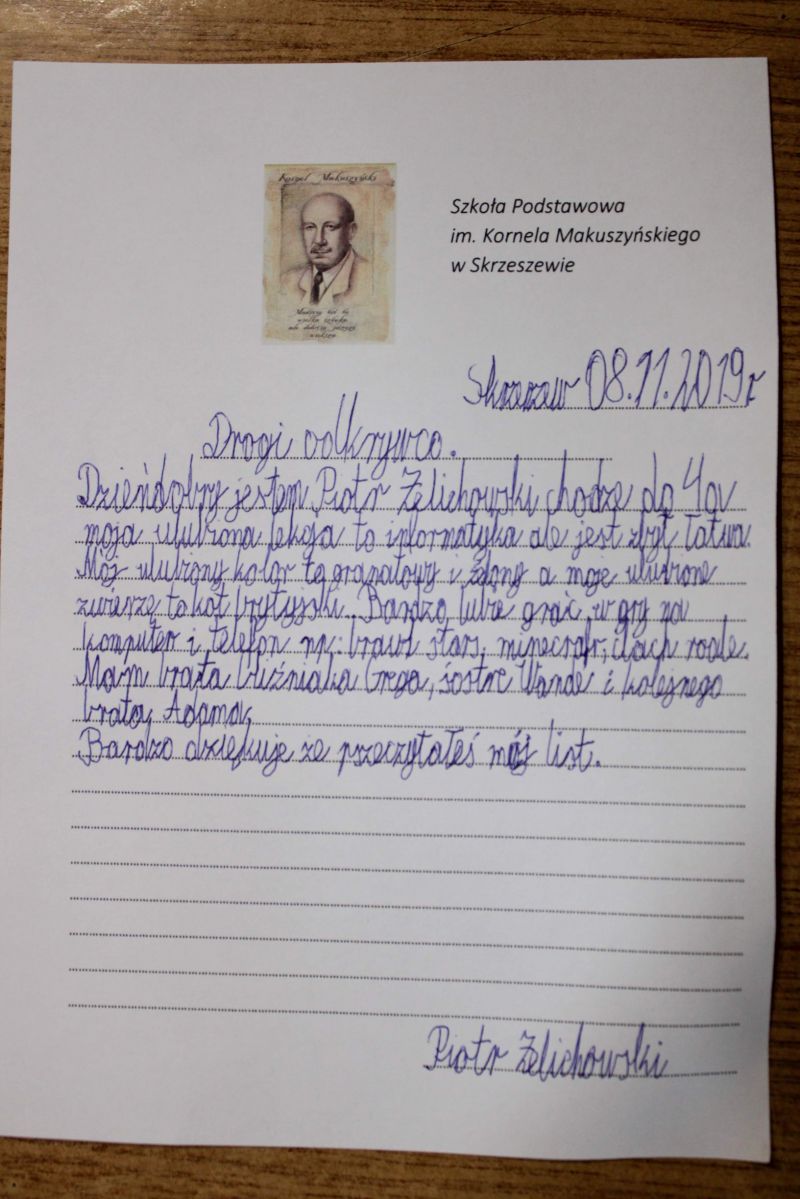 Kornel Makuszyński
Szkoła Podstawowa
im. Kornela Makuszyńskiego
w Skrzeszewie
08.11.2019r
Drogi odkrywco.
Dzieńdobry jestem Piotr Żelichowski chodzę do 4a
moja ulubiona lekcja to informatyka ale jest zbyt łatwa.
Mój ulubiony kolor to granatowy i zielony a moje ulubione
zwierzę to kot brytyjski. Bardzo lubie grać w gry na
komputer i telefon np: brawl stars, minecraft, clach roale.
Mam brata bliźniaka, siostre Wande i kolejnego
brata Adama,
Bardzo dziękuje że przeczytałeś mój list.
Piotr Żelichowski